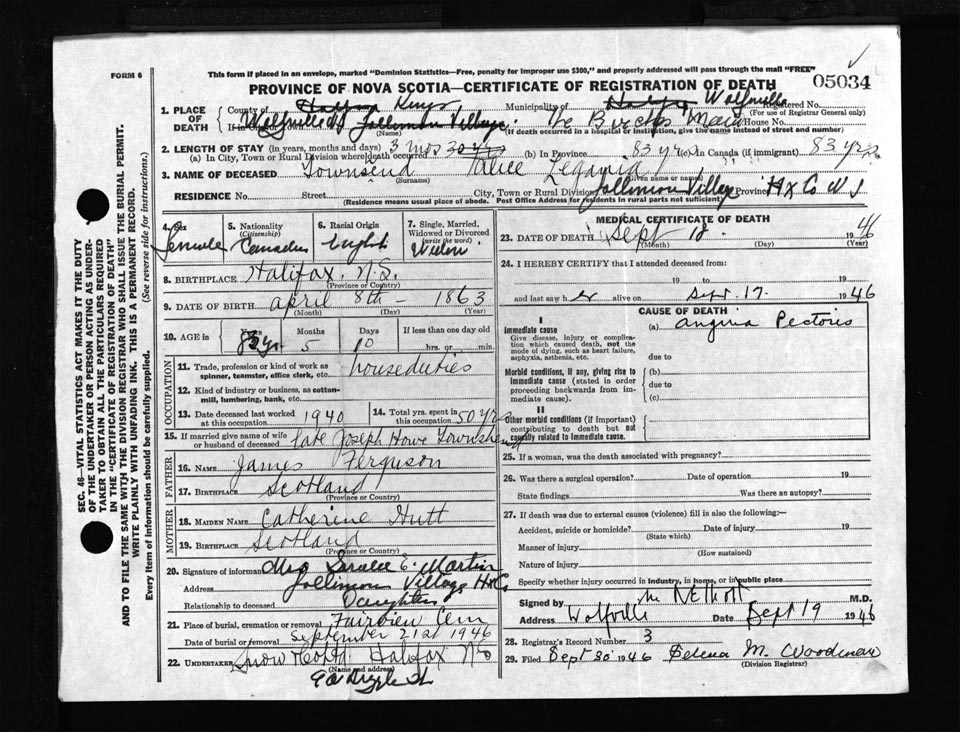 FORM 6
This form if placed in an envelope, marked "Dominion Statistics—Free, penalty for improper use $300," and properly addressed will pass through the mail "FREE"
PROVINCE OF NOVA SCOTIA—CERTIFICATE OF REGISTRATION OF DEATH
05034
1. PLACE OF DEATH
County of Halifax Kings Municipality of Halifax Wolfville Registered No.
(For use of Registrar General only)
If in City, Town Wolfville Jollimore Village. The Birches Main House No.
(Name) (If death occurred in a hospital or institution, give the name instead of street and number)
2. LENGTH OF STAY (in years, months and days) 3 mos 30 yrs 83 yr 83 yrs
(a) In City, Town or Rural Division where death occurred (b) In Province (c) In Canada (if immigrant)
3. NAME OF DECEASED Townsend Alice
(Surname) (Given name or names)
RESIDENCE No. Street City, Town or Rural Division Jollimore Village Province Hx Co N S
(Residence means usual place of abode. Post Office Address for residents in rural parts not sufficient)
4. Sex Female
5. Nationality (Citizenship) Canadian
6. Racial Origin English
7. Single, Married, Widowed or Divorced (write the word) Widow
8. BIRTHPLACE Halifax. N.S.
(Province or Country)
9. DATE OF BIRTH April 8th – 1863
(Month) (Day) (Year)
10. AGE in Years Months Days If less than one day old
83 yr 5 10 hrs. or min.
OCCUPATION
11. Trade, profession or kind of work as spinner, teamster, office clerk, etc. house duties
12. Kind of industry or business, as cotton-mill, lumbering, bank, etc.
13. Date deceased last worked at this occupation 1940
14. Total yrs. spent in this occupation 50 yrs
15. If married give name of wife or husband of deceased late Joseph Howe Townshend
FATHER
16. NAME James Ferguson
17. BIRTHPLACE Scotland
(Province or Country)
MOTHER
18. MAIDEN NAME Catherine Hutt
19. BIRTHPLACE Scotland
(Province or Country)
20. Signature of informant Mrs E. Martin
Address Jollimore Village Hx Co
Relationship to deceased Daughter
21. Place of burial, cremation or removal Fairview Cem
Date of burial or removal September 21st 1946
22. UNDERTAKER Snow Co Ltd Halifax NS
(Name and address)
90 Argyle St
MEDICAL CERTIFICATE OF DEATH
23. DATE OF DEATH Sept 18 1946
(Month) (Day) (Year)
24. I HEREBY CERTIFY that I attended deceased from:
19 to 19
and last saw h er alive on Sept. 17. 1946
CAUSE OF DEATH
I
Immediate cause
Give disease, injury or complication which caused death, not the mode of dying, such as heart failure, asphyxia, asthenia, etc.
(a) Angina Pectoris
due to
Morbid conditions, if any, giving rise to immediate cause (stated in order proceeding backwards from immediate cause).
(b)
due to
(c)
II
Other morbid conditions (if important) contributing to death but not causally related to immediate cause.
25. If a woman, was the death associated with pregnancy?
26. Was there a surgical operation? Date of operation 19
State findings Was there an autopsy?
27. If death was due to external causes (violence) fill in also the following:—
Accident, suicide or homicide? Date of injury 19
(State which)
Manner of injury
(How sustained)
Nature of injury
Specify whether injury occurred in industry, in home, or in public place
Signed by M R Elliott M.D.
Address Wolfville Date Sept 19 1946
28. Registrar's Record Number 3
29. Filed Sept 30 1946 Selena M. Woodman
(Division Registrar)
SEC. 46—VITAL STATISTICS ACT MAKES IT THE DUTY
OF THE UNDERTAKER OR PERSON ACTING AS UNDER-
TAKER TO OBTAIN ALL THE PARTICULARS REQUIRED
IN THE "CERTIFICATE OF REGISTRATION OF DEATH"
AND TO FILE THE SAME WITH THE DIVISION REGISTRAR WHO SHALL ISSUE THE BURIAL PERMIT.
WRITE PLAINLY WITH UNFADING INK. THIS IS A PERMANENT RECORD.
Every item of information should be carefully supplied. (See reverse side for instructions.)